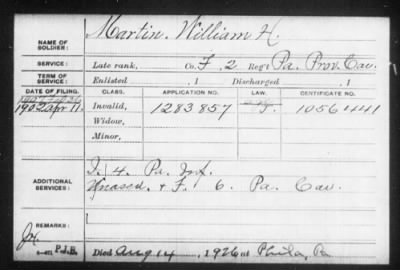 NAME OF SOLDIER: Martin, William H.
SERVICE: Late rank, Co. F, 2 Reg't Pa. Prov. Cav.
TERM OF SERVICE: Enlisted , 1 Discharged , 1
DATE OF FILING. CLASS. APPLICATION NO. LAW. CERTIFICATE NO.
1902 Apr. 11. Invalid, 1283857 1056441
Widow,
Minor,
ADDITIONAL SERVICES: I. 4. Pa. Inf.
Unassd. & F. 6. Pa. Cav.
REMARKS:
P.I.B. Died Aug 14, 1926 at Phila, Pa